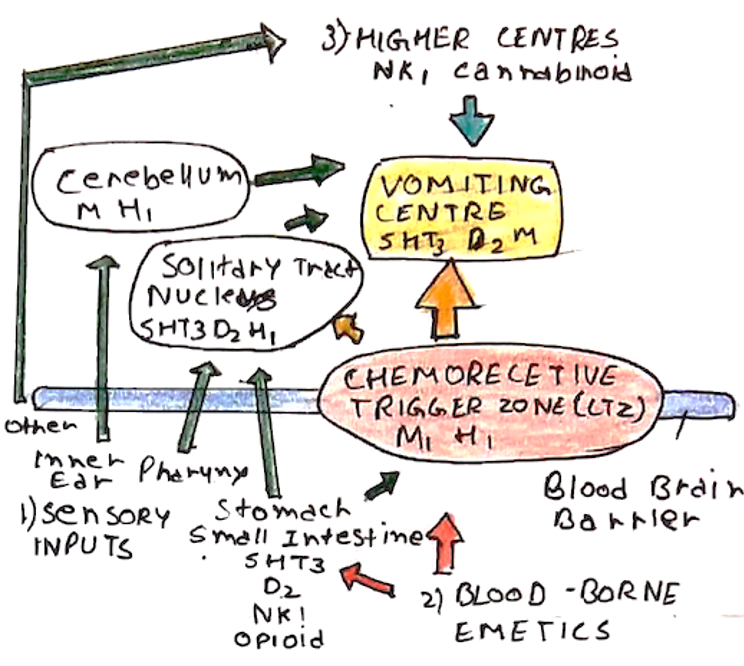 3) HIGHER CENTRES
NK1 cannabinoid
Cerebellum
M H1
VOMITING
CENTRE
5HT3 D2 M
Solitary Tract
Nucleus
5HT3 D2 H1
CHEMORECETIVE
TRIGGER ZONE (CTZ)
M1 H1
Other
Inner
Ear
Pharynx
1) SENSORY
INPUTS
Stomach
Small Intestine
5HT3
D2
NK1
OPIOID
Blood Brain
Barrier
2) BLOOD-BORNE
EMETICS